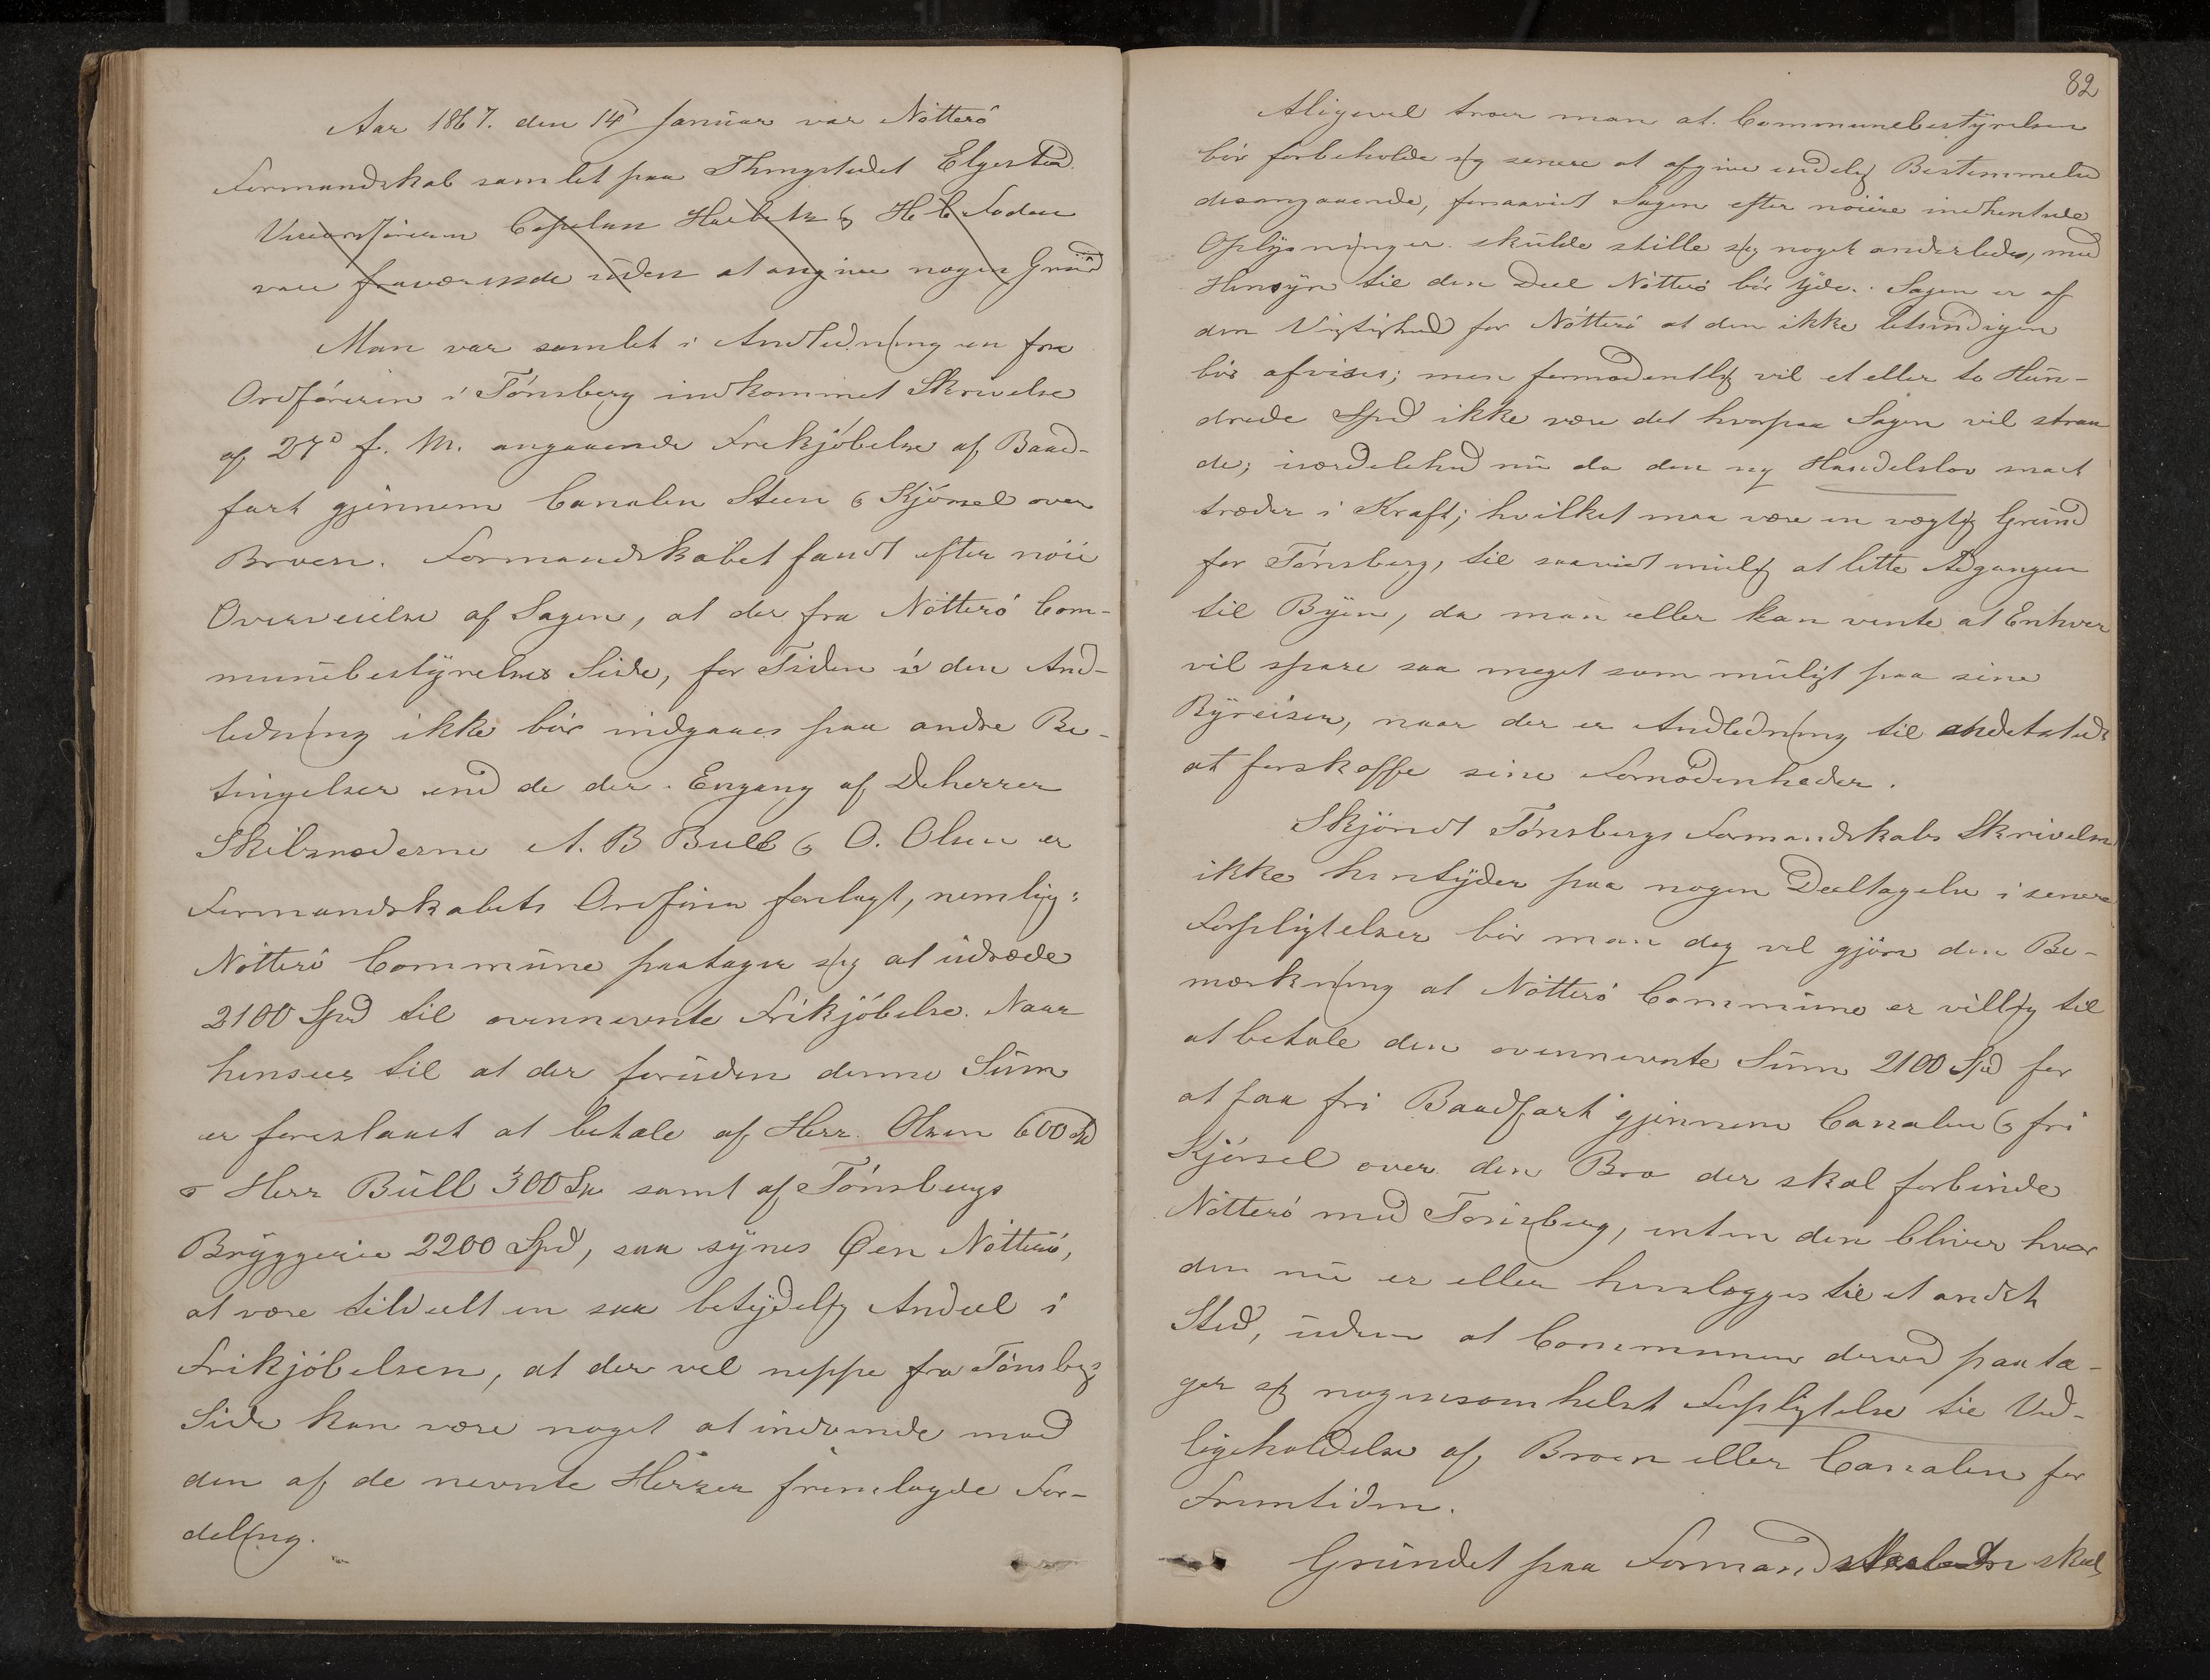 Aar 1867. den 14de Januar var Nötterö
Formandskab samlet paa Thingstedet Elgestad.
Viceordföreren Capelan Holst & H
vare fraværende uden at angive nogen Grund
Man var samlet i Andledning en fra
Ordföreren i Tönsberg indkommet Skrivelse
af 27de f. M. angaaende Frikjöbelse af Baad-
fart gjennem Canalen Steen & Kjörsel over
Broen. Formandskabet fandt efter nöie
Overveielse af Sagen, at der fra Nötterö Com-
munebestyrelses Side, for Tiden i den And-
ledning ikke bör indgaaes paa andre Be-
tingelser end de der Engang af Deherrer
Skibsrederne A. B Bull & O. Olsen er
Formandskabets Ordförer forelagt, nemlig:
Nötterö Commune paatager sig at udrede
2100 Spd til ovennevnte Frikjöbelse. Naar
hensees til at der foruden denne Sum
er foreslaaet at betale af Herr. Olsen 600 Sp
o Herr Bull 300 Sp samt af Tönsbergs
Bryggerie 2200 Spd, saa synes Øen Nötterö,
at være tildeelt en saa betydelig Andeel i
Frikjöbelsen, at der vel neppe fra Tönsbergs
Side kan være noget at indvende mod
den af de nevnte Herrer fremlagde For-
deling.
82
Aligevel troer man at Communebestyrelsen
bör forbeholde sig senere at afgive endelig Bestemmelse
desangaaende, forsaavidt Sagen efter nöiere indhentede
Oplysninger skulde stille sig noget anderledes, med
Hensyn til den Deel Nötterö bör yde. Sagen er af
den Vigtighed for Nötterö at den ikke letsindigen
bör afvises; men formodentlig vil et eller to Hun-
drede Spd ikke være det hvorpaa Sagen vil stran
de; isærdelehed nu da den ny Handelslov snart
træder i Kraft; hvilket maa være en vægtig Grund
for Tönsberg, til saavidt mulig at lette Adgangen
til Byen, da man eller kan vente at Enhver
vil spare saa meget som muligt paa sine
Byreiser, naar der er Andledning til andetsteds
at forskaffe sine Fornödenheder.
Skjöndt Tönsbergs Formandskabs Skrivelse
ikke hentyder paa nogen Deeltagelse i senere
Forpligtelser bör man dog vel gjöre den Be-
mærkning at Nötterö Commune er villig til
at betale den ovennevnte Sum 2100 Spd for
at faa fri Baadfart gjennem Canalen & fri
Kjörsel over den Bro der skal forbinde
Nötterö med Tönsberg, enten den bliver hvor
den nu er eller henlægges til et andet
Sted, uden at Communen derved paata-
ger sig nogensomhelst Forpligtelse til Ved-
ligeholdelse af Broen eller Canalen for
Fremtiden.
Grundet paa Formandskabets skal